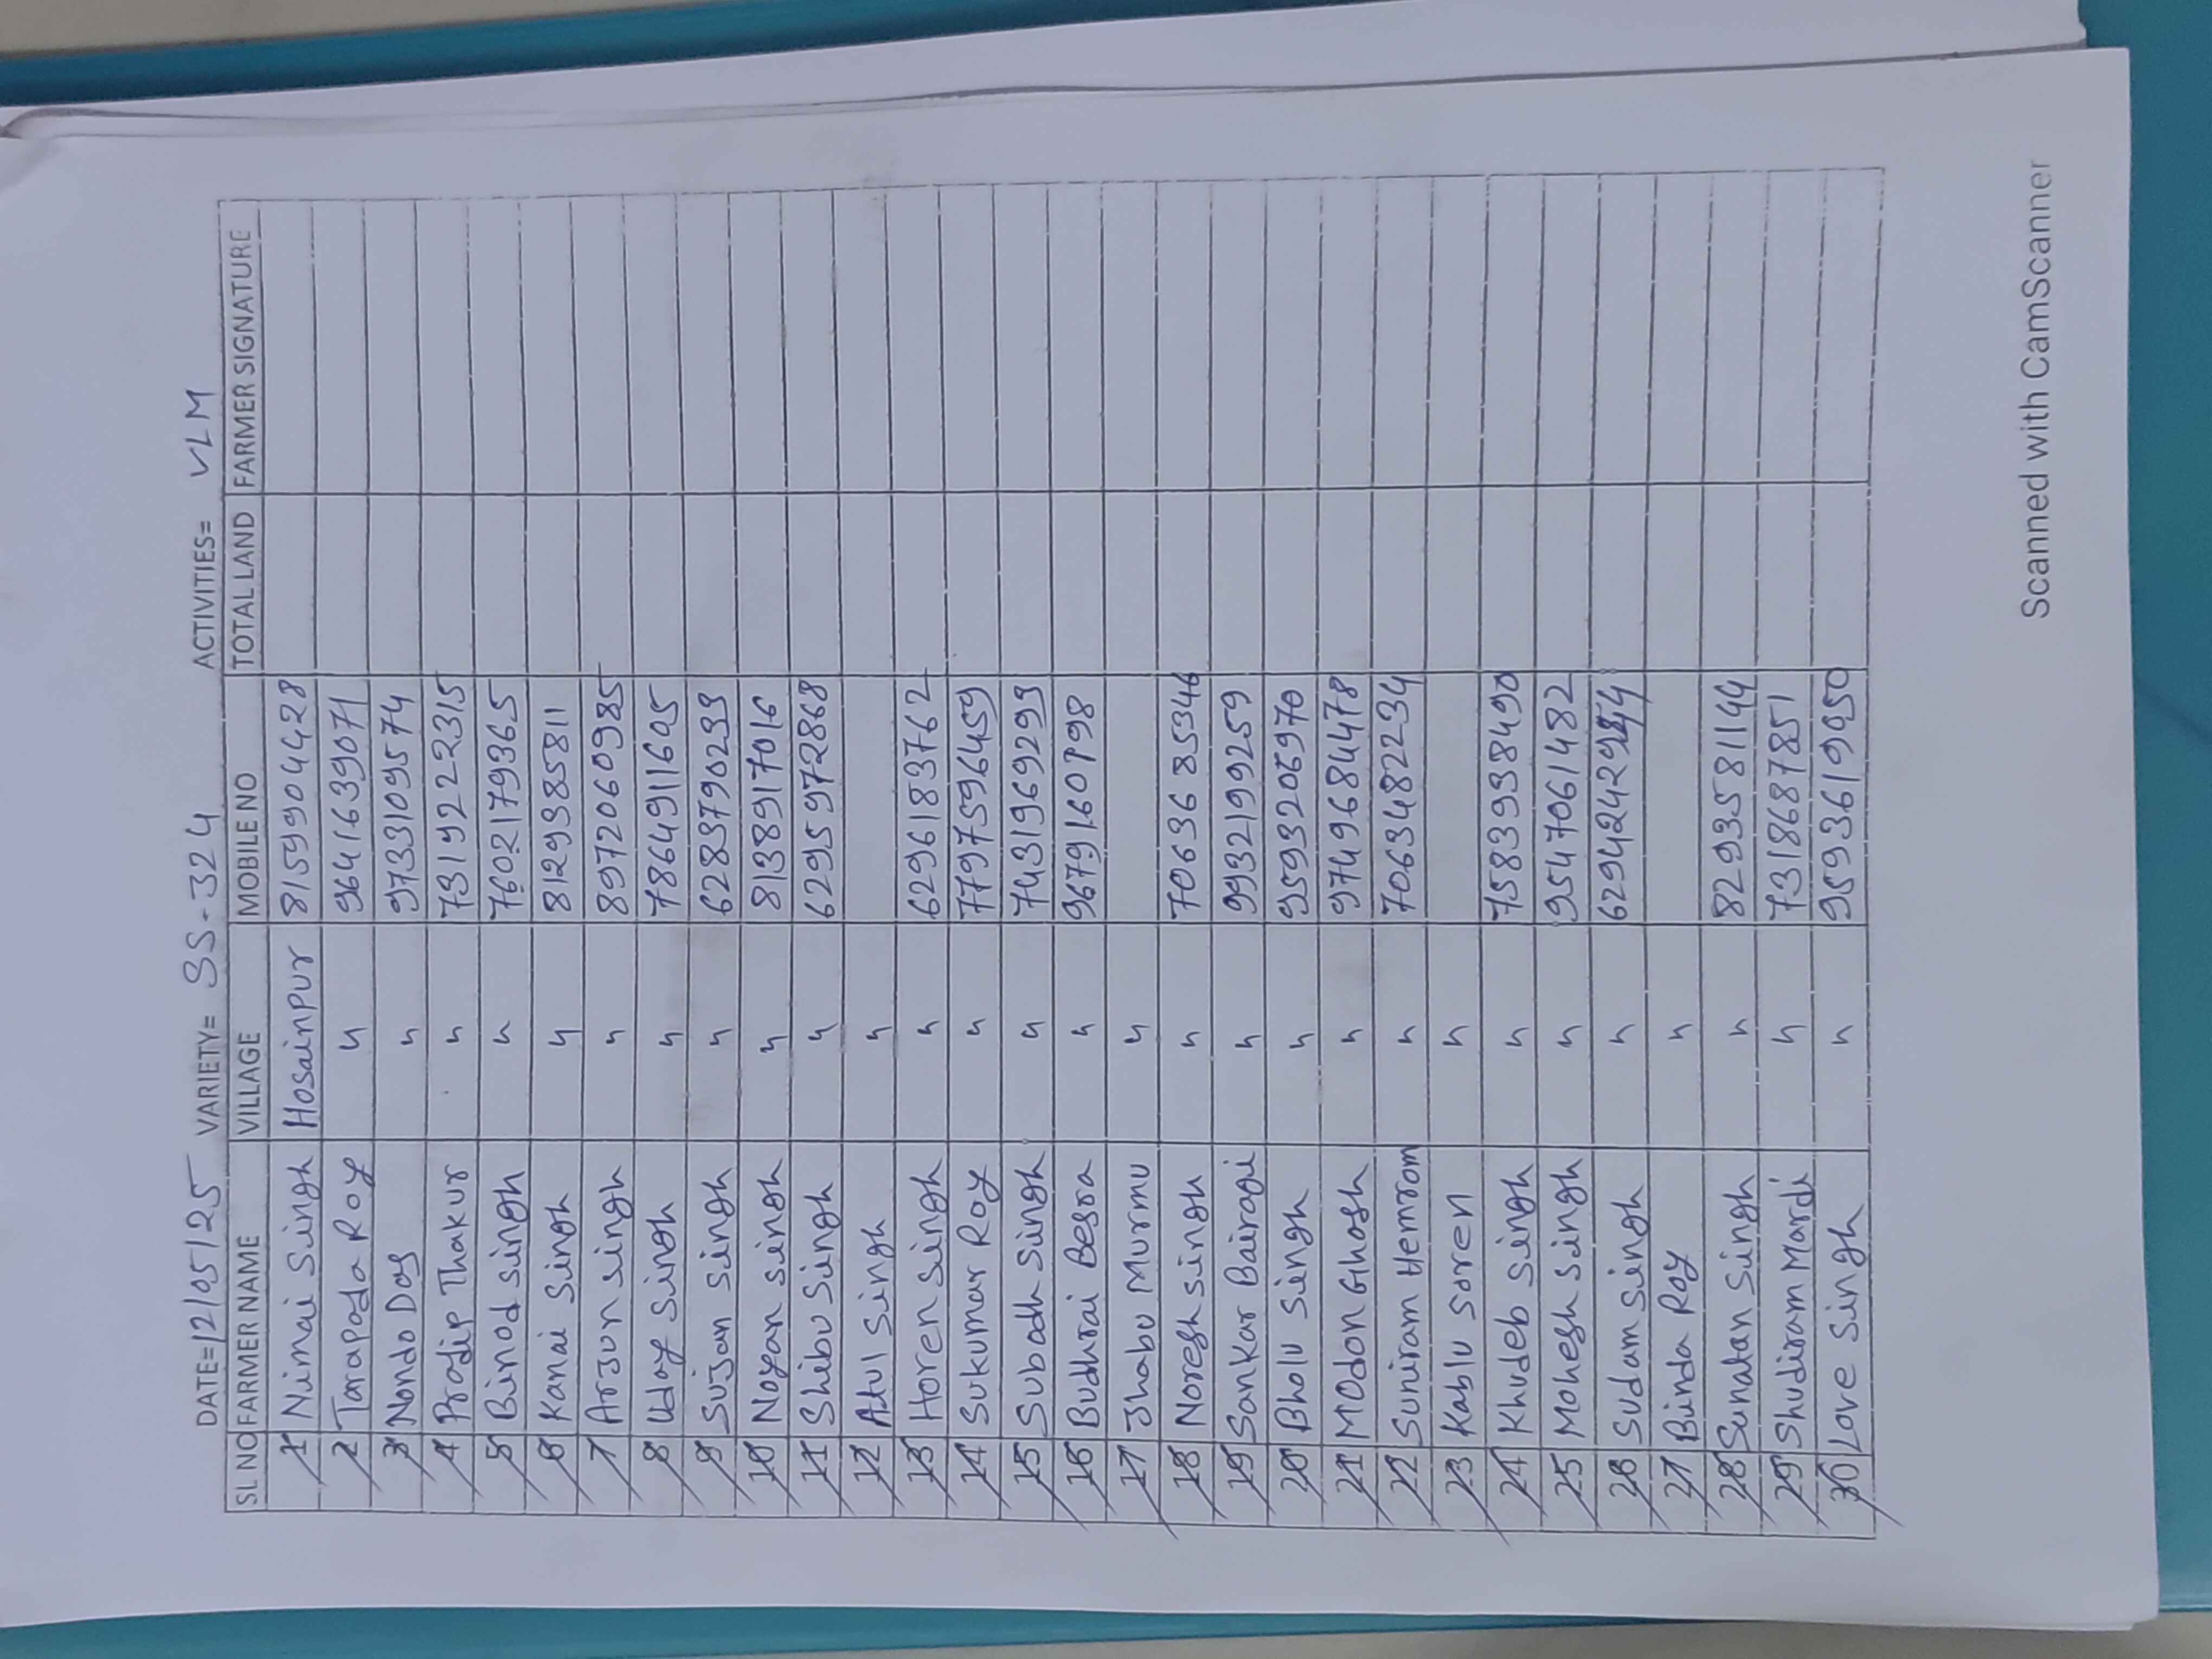 DATE=12/05/25 VARIETY= SS-324 ACTIVITIES= VLM
SL NO FARMER NAME VILLAGE MOBILE NO TOTAL LAND FARMER SIGNATURE
1 Nimai Singh Hosainpur 8159904428
2 Tarapada Roy " 9641639071
3 Nondo Das " 9733109574
4 Pradip Thakur " 7319222315
5 Binod Singh " 7602179365
6 Kanai Singh " 8129385811
7 Arjun Singh " 8972060985
8 Uday Singh " 7864911605
9 Sujan Singh " 6283790239
10 Noyan Singh " 8138917016
11 Shibu Singh " 6295972868
12 Atul Singh "
13 Horen Singh " 6296183762
14 Sukumar Roy " 7797596459
15 Subodh Singh " 7431969293
16 Budhrai Besra " 9679160798
17 Jhabu Murmu "
18 Noresh Singh " 7063685346
19 Sankar Bairagi " 9932199259
20 Bholu Singh " 9593206970
21 Modon Ghosh " 9749684478
22 Suniram Hemrom " 7063482234
23 Kablu Soren "
24 Khudeb Singh " 7583938490
25 Mohesh Singh " 9547061482
26 Sudam Singh "
27 Binda Roy "
28 Sunatan Singh " 8293581144
29 Shudiram Mardi " 7318687851
30 Love Singh " 9593619950
Scanned with CamScanner